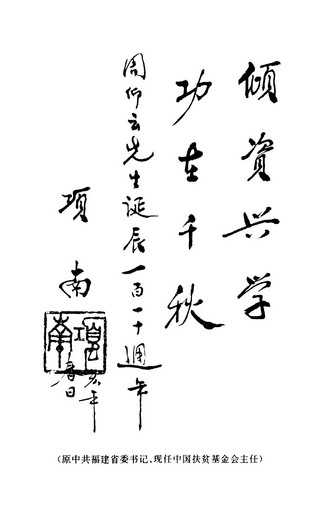 傾資兴学
功在千秋
周仰云先生诞辰一百一十週年
项南
項南
亥年
春日
(原中共福建省委书记、现任中国扶贫基金会主任)